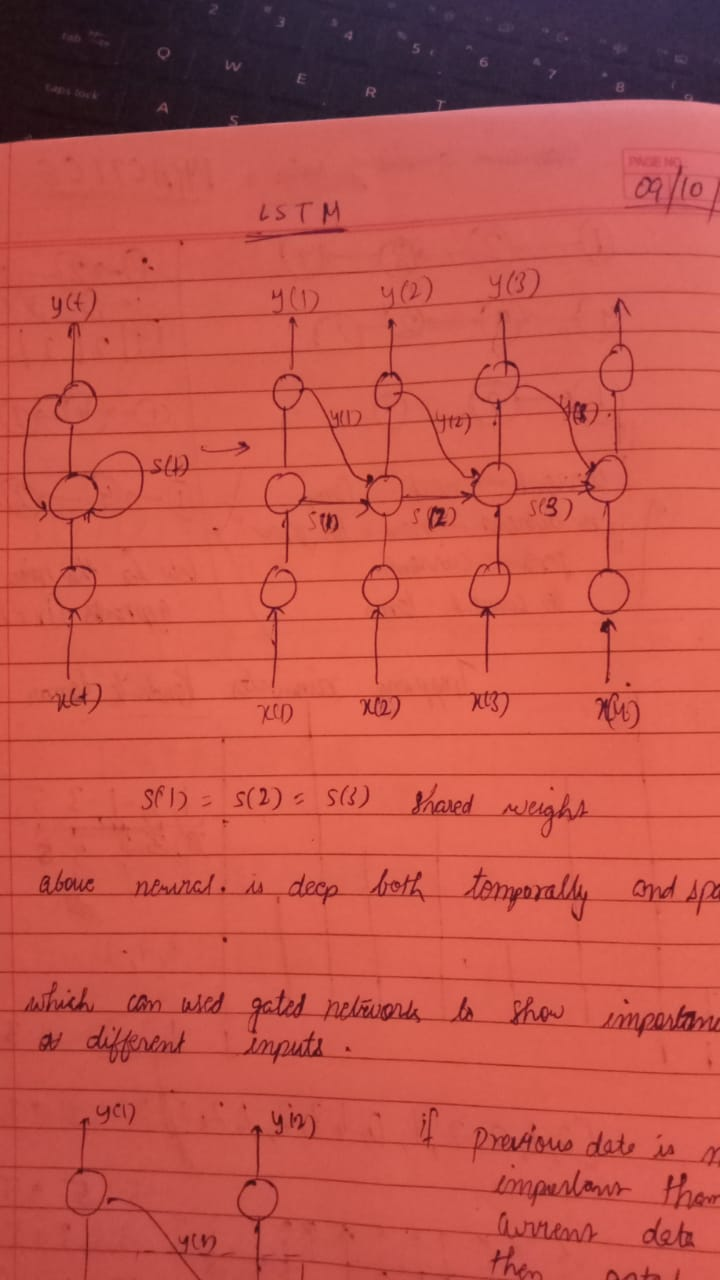 tab
Q
W
E
R
T
2
3
4
5
6
7
8
9
caps lock
A
S
PAGE NO.
09/10/
LSTM
y(t)
y(1)
y(2)
y(3)
y(1)
y(2)
s(t)
s(1)
s(2)
s(3)
x(t)
x(1)
x(2)
x(3)
x(4)
s(1) = s(2) = s(3) shared weight
above neural. is deep both temporally and spa
which can used gated networks to show importanc
different inputs.
y(1)
y(2)
if previous date is
important than
current data
then
y(1)